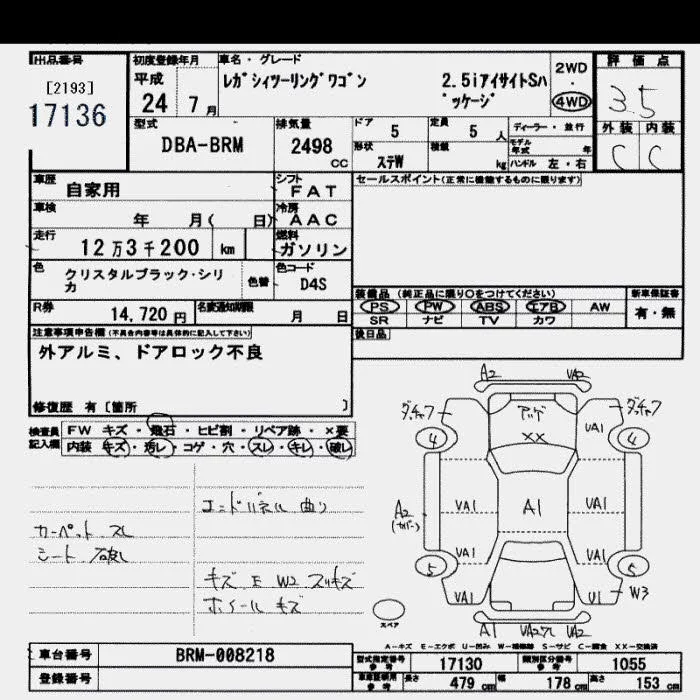 出品番号
[2193]
17136
初度登録年月
平成
24 7 月
車名・グレード
レガシィツーリングワゴン 2.5iアイサイトSパッケージ
2WD
4WD
評価点
3.5
外装 内装
C C
型式
DBA-BRM
排気量
2498
CC
ドア 5
定員 5 人
形状 ステW
積載 kg
ディーラー・並行
モデル年式 年
ハンドル 左・右
車歴 自家用
シフト FAT
車検 年 月( 日)
冷房 AAC
走行 12万3千200 km
燃料 ガソリン
色 クリスタルブラック・シリカ
色替
色コード D4S
R券 14,720 円
名変通知期限 月 日
セールスポイント(正常に機能するものに限ります)
装備品 (純正品に限り○をつけてください)
PS PW ABS エアB AW
SR ナビ TV カワ
新車保証書
有・無
後日品
注意事項申告欄(不具合内容等は具体的に記入して下さい)
外アルミ、ドアロック不良
修復歴 有 [箇所 ]
検査員記入欄
FW キズ・飛石・ヒビ割・リペア跡・×要
内装 キズ・汚レ・コゲ・穴・スレ・キレ・破レ
エンドパネル 曲り
カーペット スレ
シート 破レ
キズ E W2 スリキズ
ホイール キズ
A2 VA2
4 XX VA1 4
A2
(カバー)
VA1 A1 VA1
VA1 VA1
5 5
VA1 U1 W3
A1
スペア
A-キズ E-エクボ U-凹み W-補修跡 S-サビ C-腐食 XX-交換済
車台番号 BRM-008218
登録番号
型式指定番号 参考 17130
類別区分番号 参考 1055
車庫証明用 参考 長さ 479 cm 幅 178 cm 高さ 153 cm